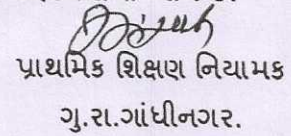 પ્રાથમિક શિક્ષણ નિયામક
ગુ.રા.ગાંધીનગર.